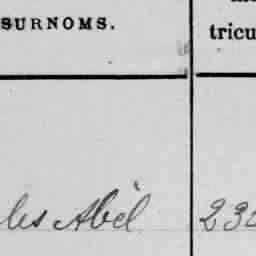 SURNOMS.
tricu
les Abel
230